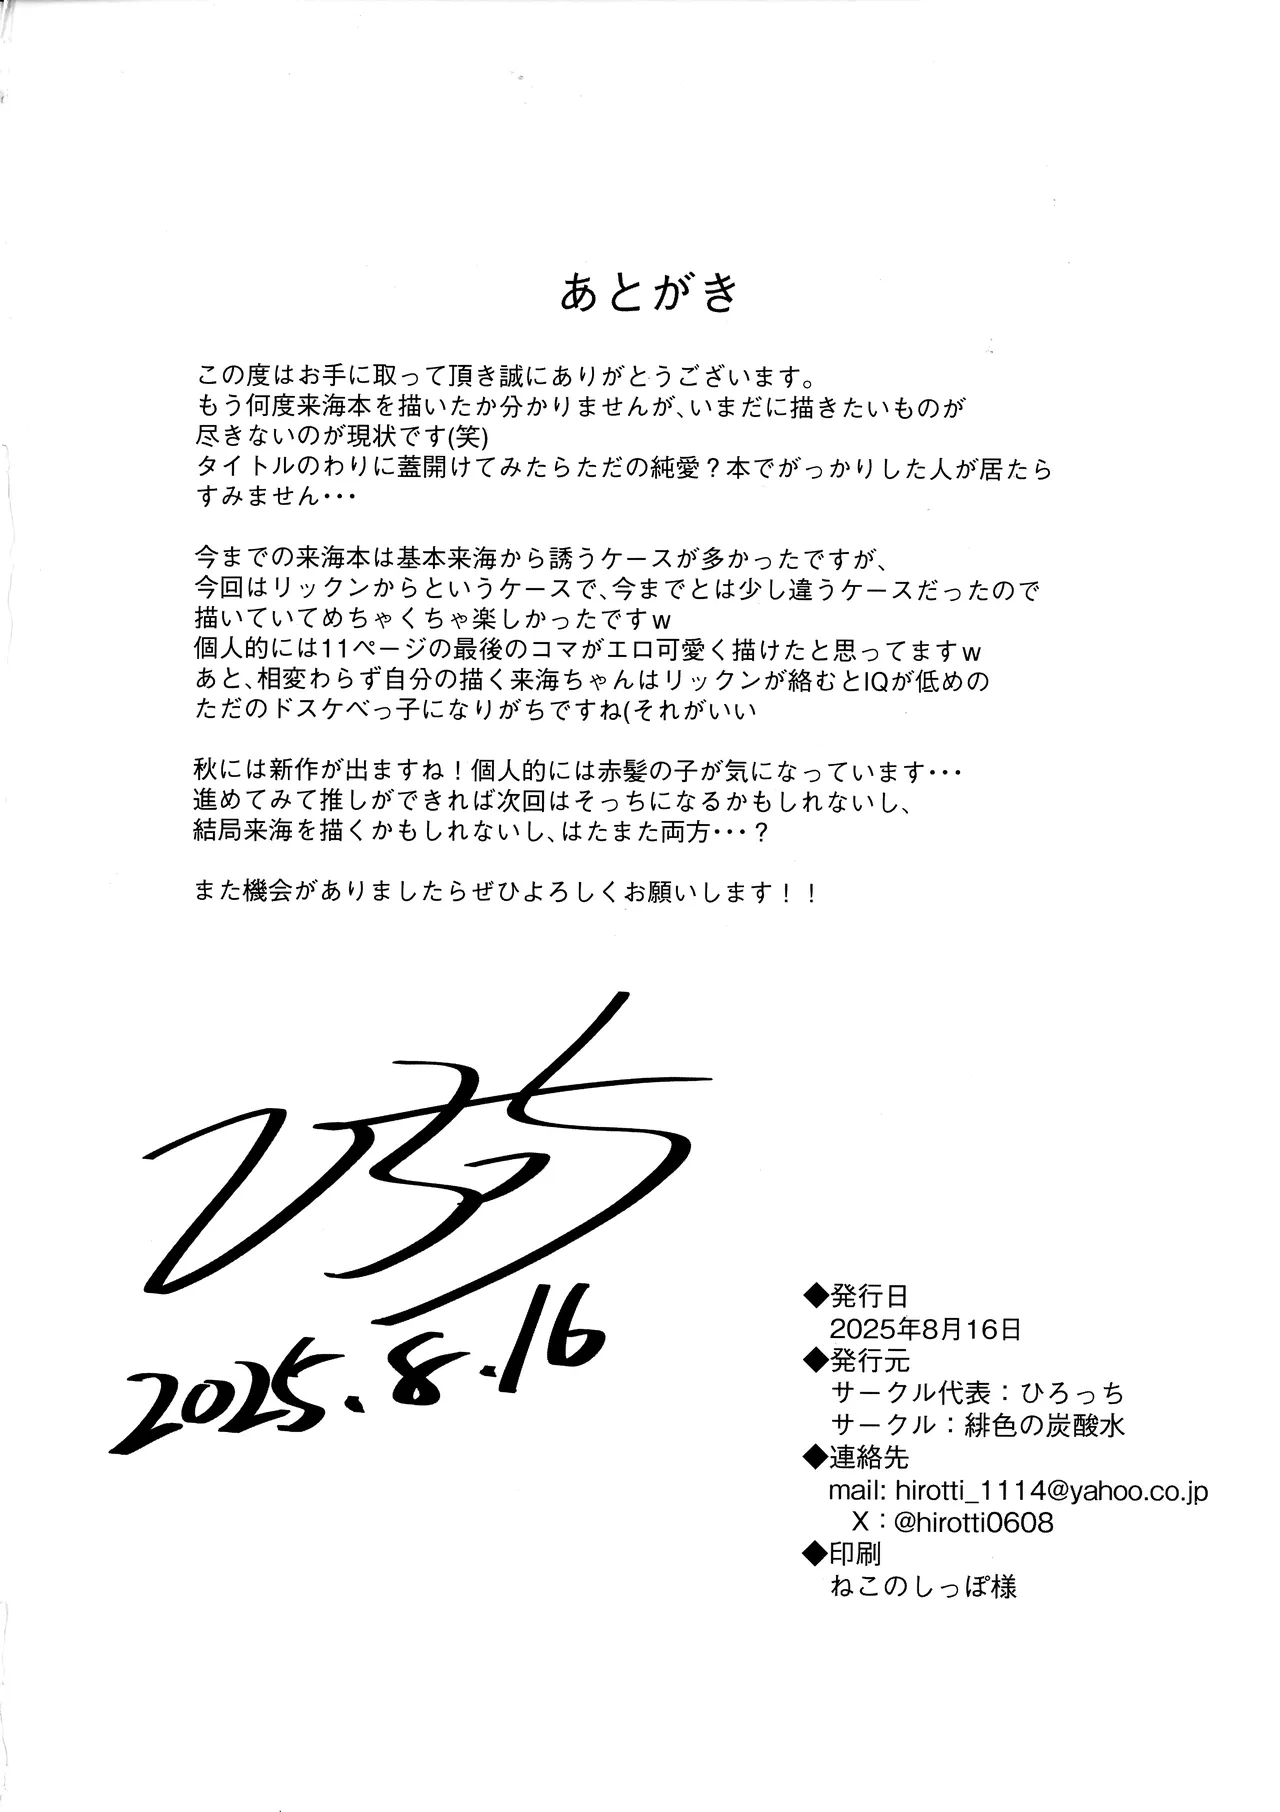 あとがき
この度はお手に取って頂き誠にありがとうございます。
もう何度来海本を描いたか分かりませんが、いまだに描きたいものが
尽きないのが現状です(笑)
タイトルのわりに蓋開けてみたらただの純愛？本でがっかりした人が居たら
すみません･･･
今までの来海本は基本来海から誘うケースが多かったですが、
今回はリックンからというケースで、今までとは少し違うケースだったので
描いていてめちゃくちゃ楽しかったですw
個人的には11ページの最後のコマがエロ可愛く描けたと思ってますw
あと、相変わらず自分の描く来海ちゃんはリックンが絡むとIQが低めの
ただのドスケベっ子になりがちですね(それがいい
秋には新作が出ますね！個人的には赤髪の子が気になっています･･･
進めてみて推しができれば次回はそっちになるかもしれないし、
結局来海を描くかもしれないし、はたまた両方･･･？
また機会がありましたらぜひよろしくお願いします！！
ひろっち
2025.8.16
◆発行日
2025年8月16日
◆発行元
サークル代表：ひろっち
サークル：緋色の炭酸水
◆連絡先
mail: hirotti_1114@yahoo.co.jp
X：@hirotti0608
◆印刷
ねこのしっぽ様